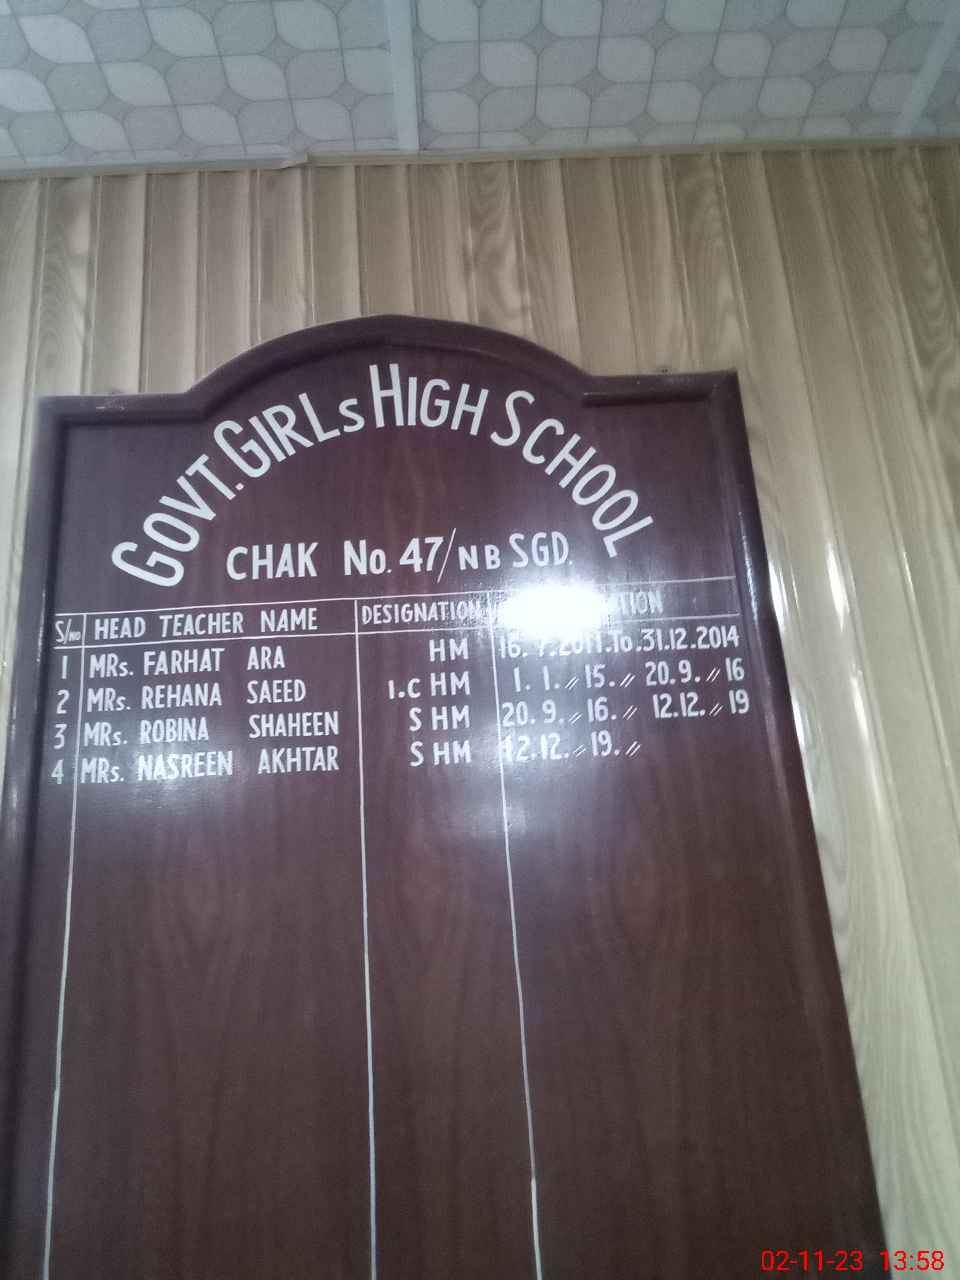 GOVT. GIRLS HIGH SCHOOL
CHAK No. 47/NB SGD.
S/No HEAD TEACHER NAME DESIGNATION
1 MRs. FARHAT ARA HM 16. 7.2011.To.31.12.2014
2 MRs. REHANA SAEED I.C HM 1. 1.〃 15. 〃 20.9. 〃 16
3 MRs. ROBINA SHAHEEN S HM 20.9. 〃 16. 〃 12.12. 〃 19
4 MRs. NASREEN AKHTAR S HM 12.12. 〃 19. 〃
02-11-23 13:58